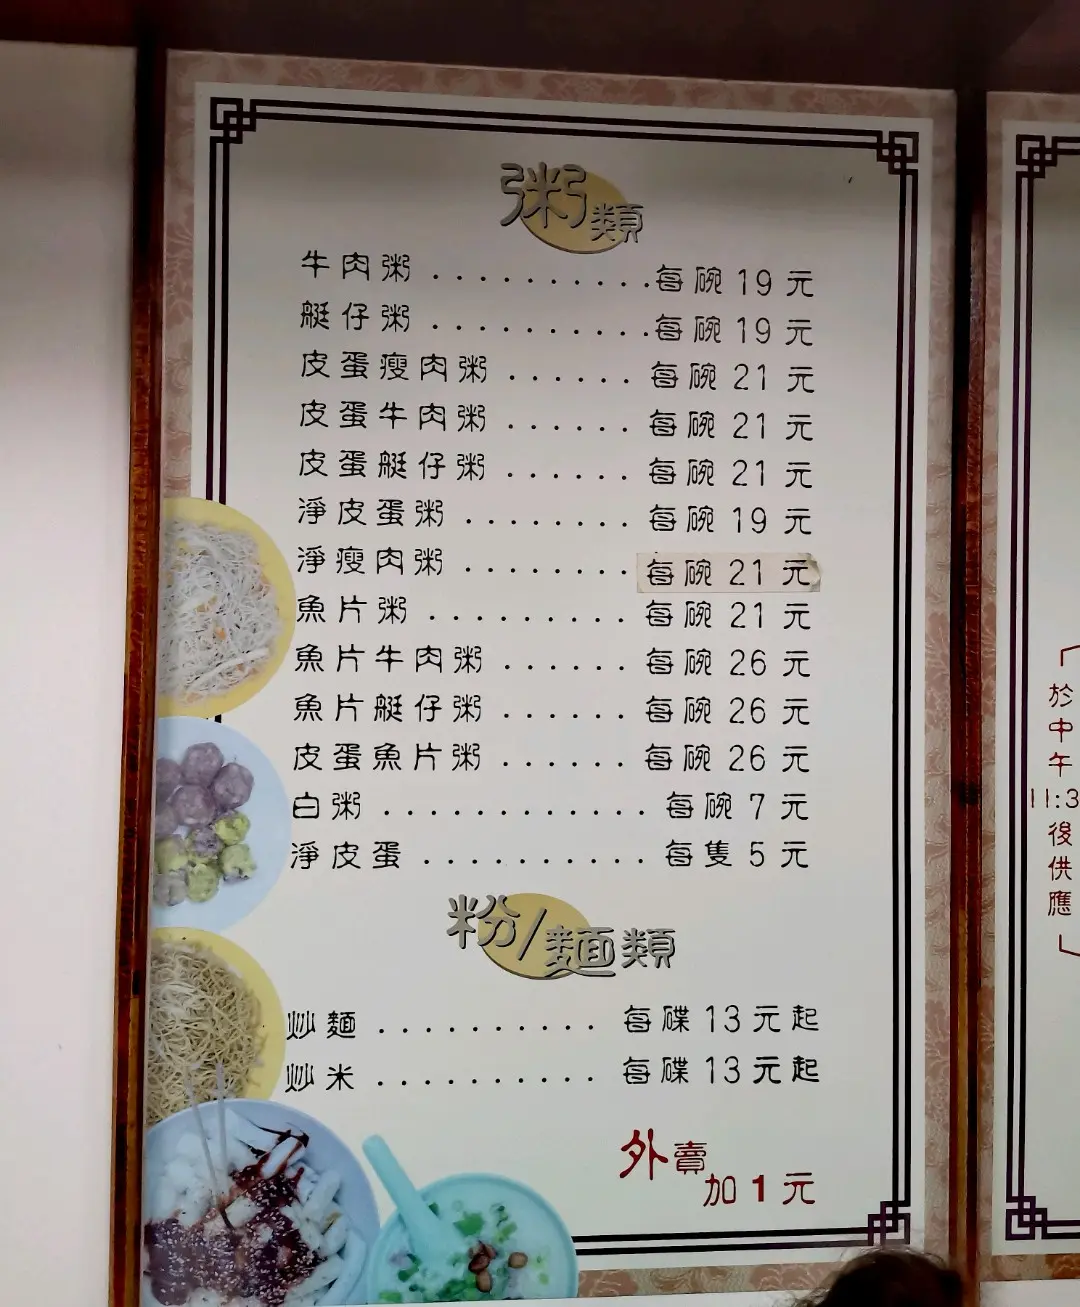 粥類
牛肉粥 ........... 每碗 19 元
艇仔粥 ........... 每碗 19 元
皮蛋瘦肉粥 ....... 每碗 21 元
皮蛋牛肉粥 ....... 每碗 21 元
皮蛋艇仔粥 ....... 每碗 21 元
淨皮蛋粥 ......... 每碗 19 元
淨瘦肉粥 ......... 每碗 21 元
魚片粥 ........... 每碗 21 元
魚片牛肉粥 ....... 每碗 26 元
魚片艇仔粥 ....... 每碗 26 元
皮蛋魚片粥 ....... 每碗 26 元
白粥 ............. 每碗 7 元
淨皮蛋 ........... 每隻 5 元
粉/麵類
炒麵 ........... 每碟 13 元起
炒米 ........... 每碟 13 元起
外賣
加 1 元
於中午
11:3
後供應